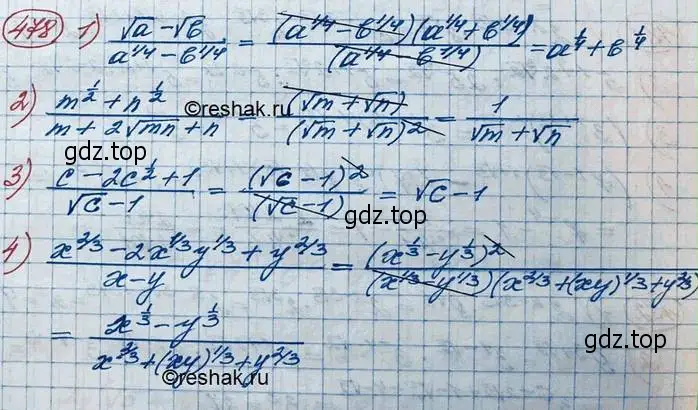 478 1) (√a − √b)/(a^1/4 − b^1/4) = (a^1/4 − b^1/4)(a^1/4 + b^1/4)/(a^1/4 − b^1/4) = a^1/4 + b^1/4
2) (m^1/2 + n^1/2)/(m + 2√mn + n) = (√m + √n)/(√m + √n)^2 = 1/(√m + √n)
©reshak.ru
3) (c − 2c^1/2 + 1)/(√c − 1) = (√c − 1)^2/(√c − 1) = √c − 1
gdz.top
4) (x^2/3 − 2x^1/3 y^1/3 + y^2/3)/(x − y) = (x^1/3 − y^1/3)^2/(x^1/3 − y^1/3)(x^2/3 + (xy)^1/3 + y^2/3)
gdz.top
= (x^1/3 − y^1/3)/(x^2/3 + (xy)^1/3 + y^2/3)
©reshak.ru